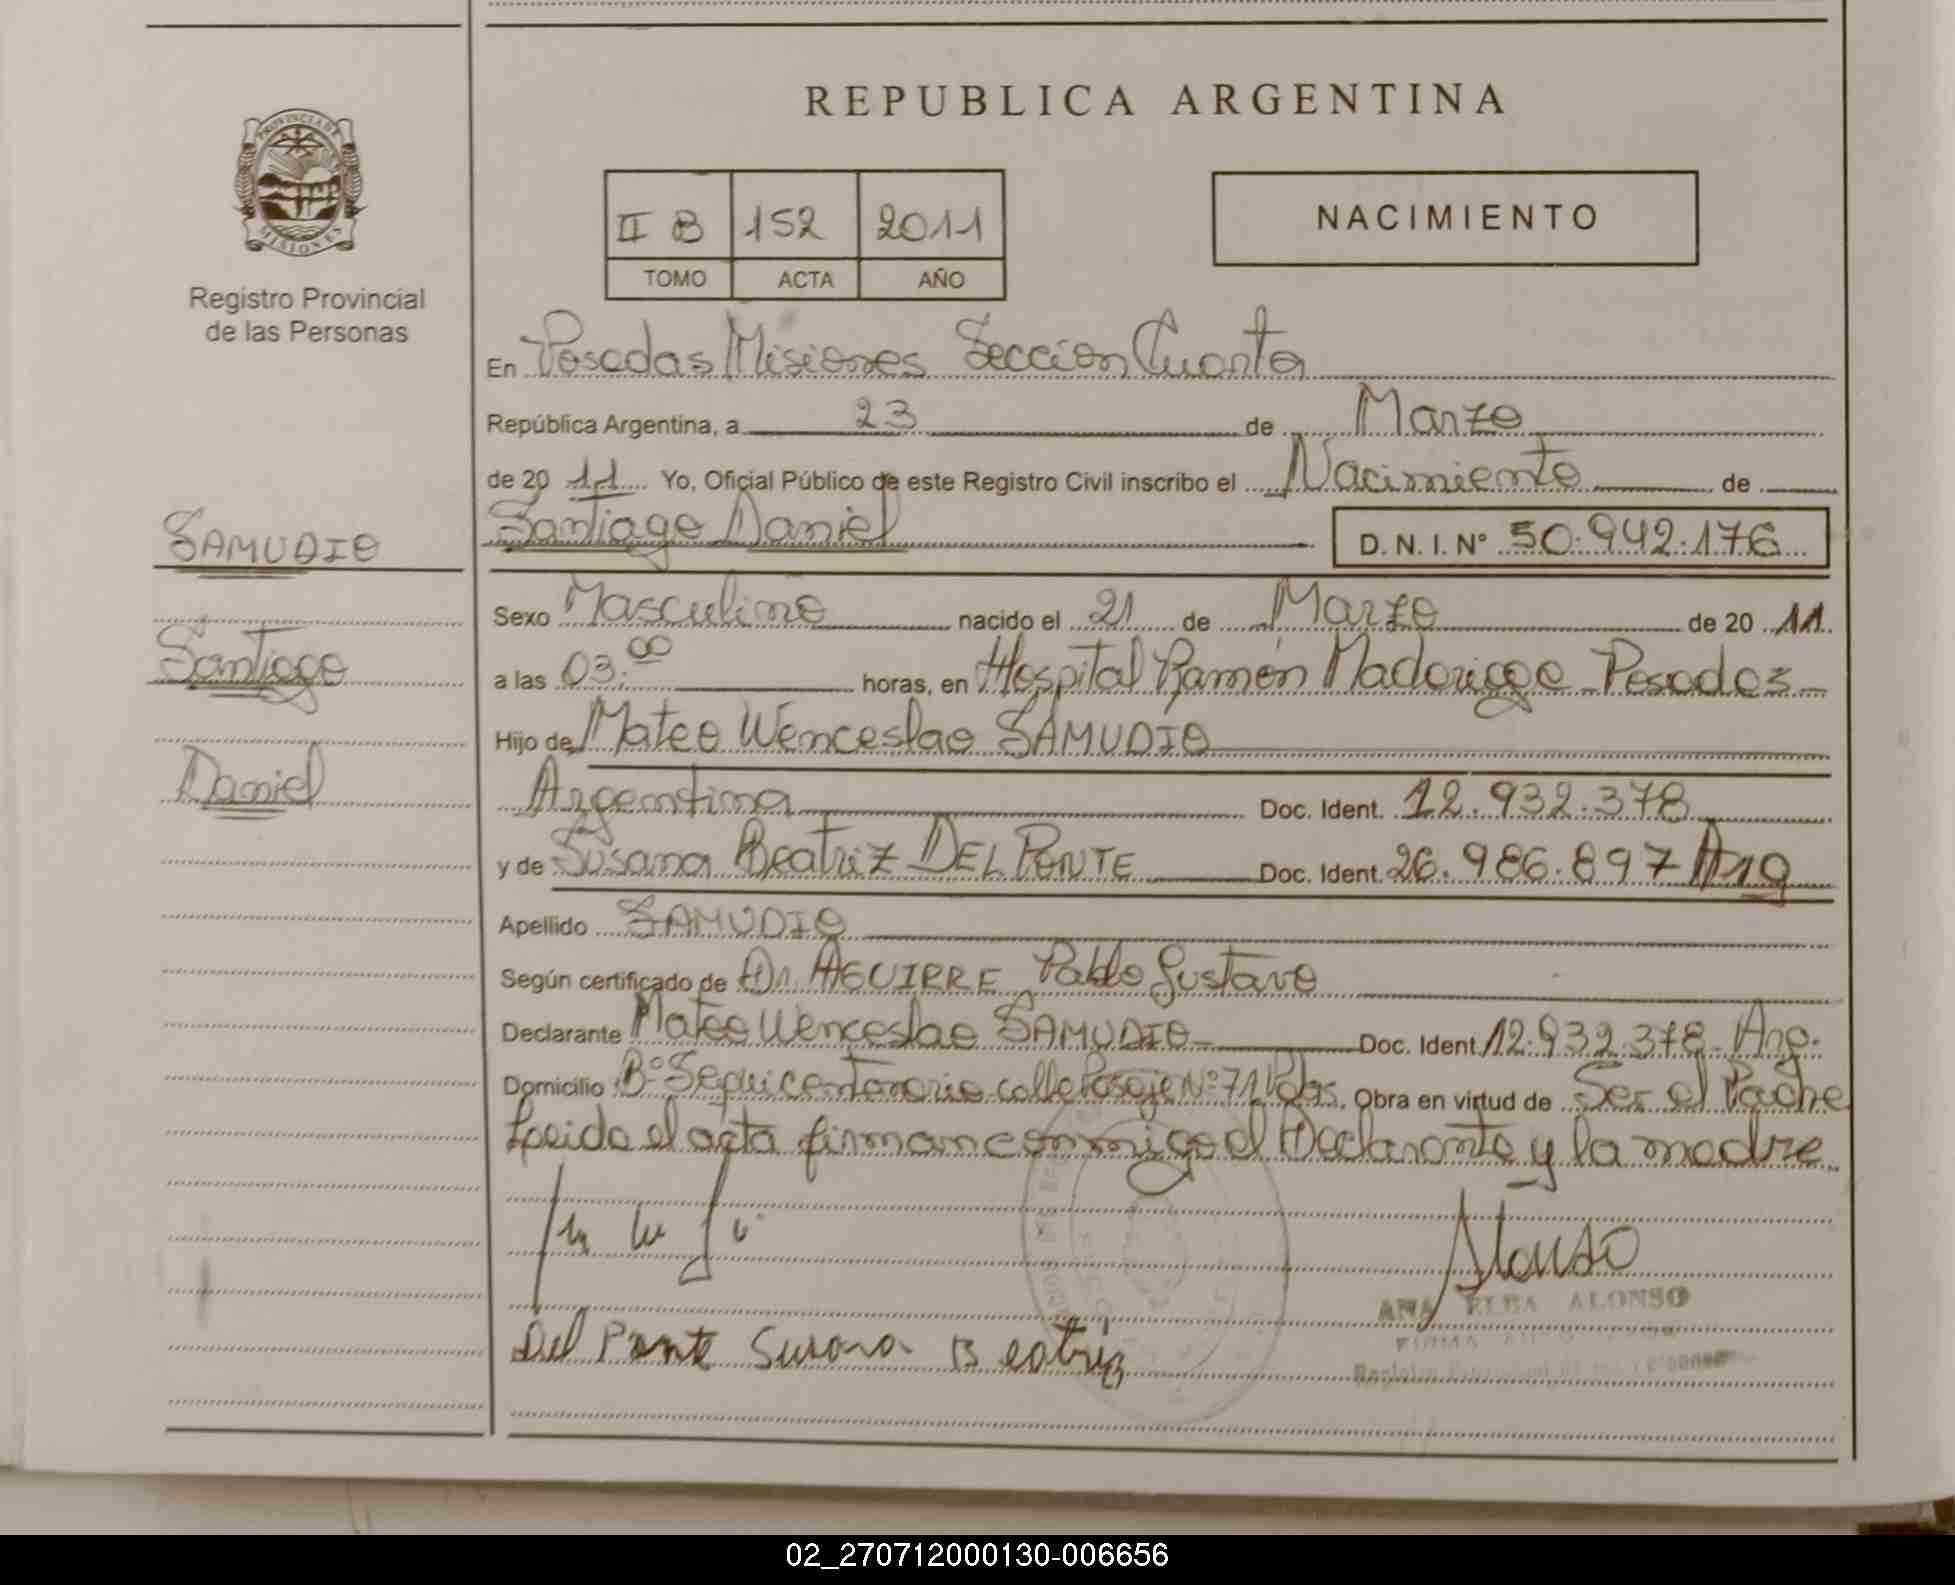 REPUBLICA ARGENTINA
PROVINCIA DE MISIONES
Registro Provincial
de las Personas
II B 152 2011
TOMO ACTA AÑO
NACIMIENTO
En Posadas Misiones Sección Cuarta
República Argentina, a 23 de Marzo
de 20 11 Yo, Oficial Público de este Registro Civil inscribo el Nacimiento de
Santiago Daniel D. N. I. N° 50.942.176
SAMUDIO
Santiago
Daniel
Sexo Masculino nacido el 21 de Marzo de 20 11
a las 03:00 horas, en Hospital Ramón Madariaga Posadas
Hijo de Mateo Wenceslao SAMUDIO
Argentina Doc. Ident. 12.932.378
y de Susana Beatriz DEL PONTE Doc. Ident. 26.986.897 Arg
Apellido SAMUDIO
Según certificado de Dr. AGUIRRE Pablo Gustavo
Declarante Mateo Wenceslao SAMUDIO Doc. Ident. 12.932.378 Arg.
Domicilio B° Sequicentenario calle Pasaje N° 71 Pdas. Obra en virtud de Ser el Padre
Leida el acta firman conmigo el Declarante y la madre
Alonso
ANA ELBA ALONSO
Del Ponte Susana Beatriz
02_270712000130-006656